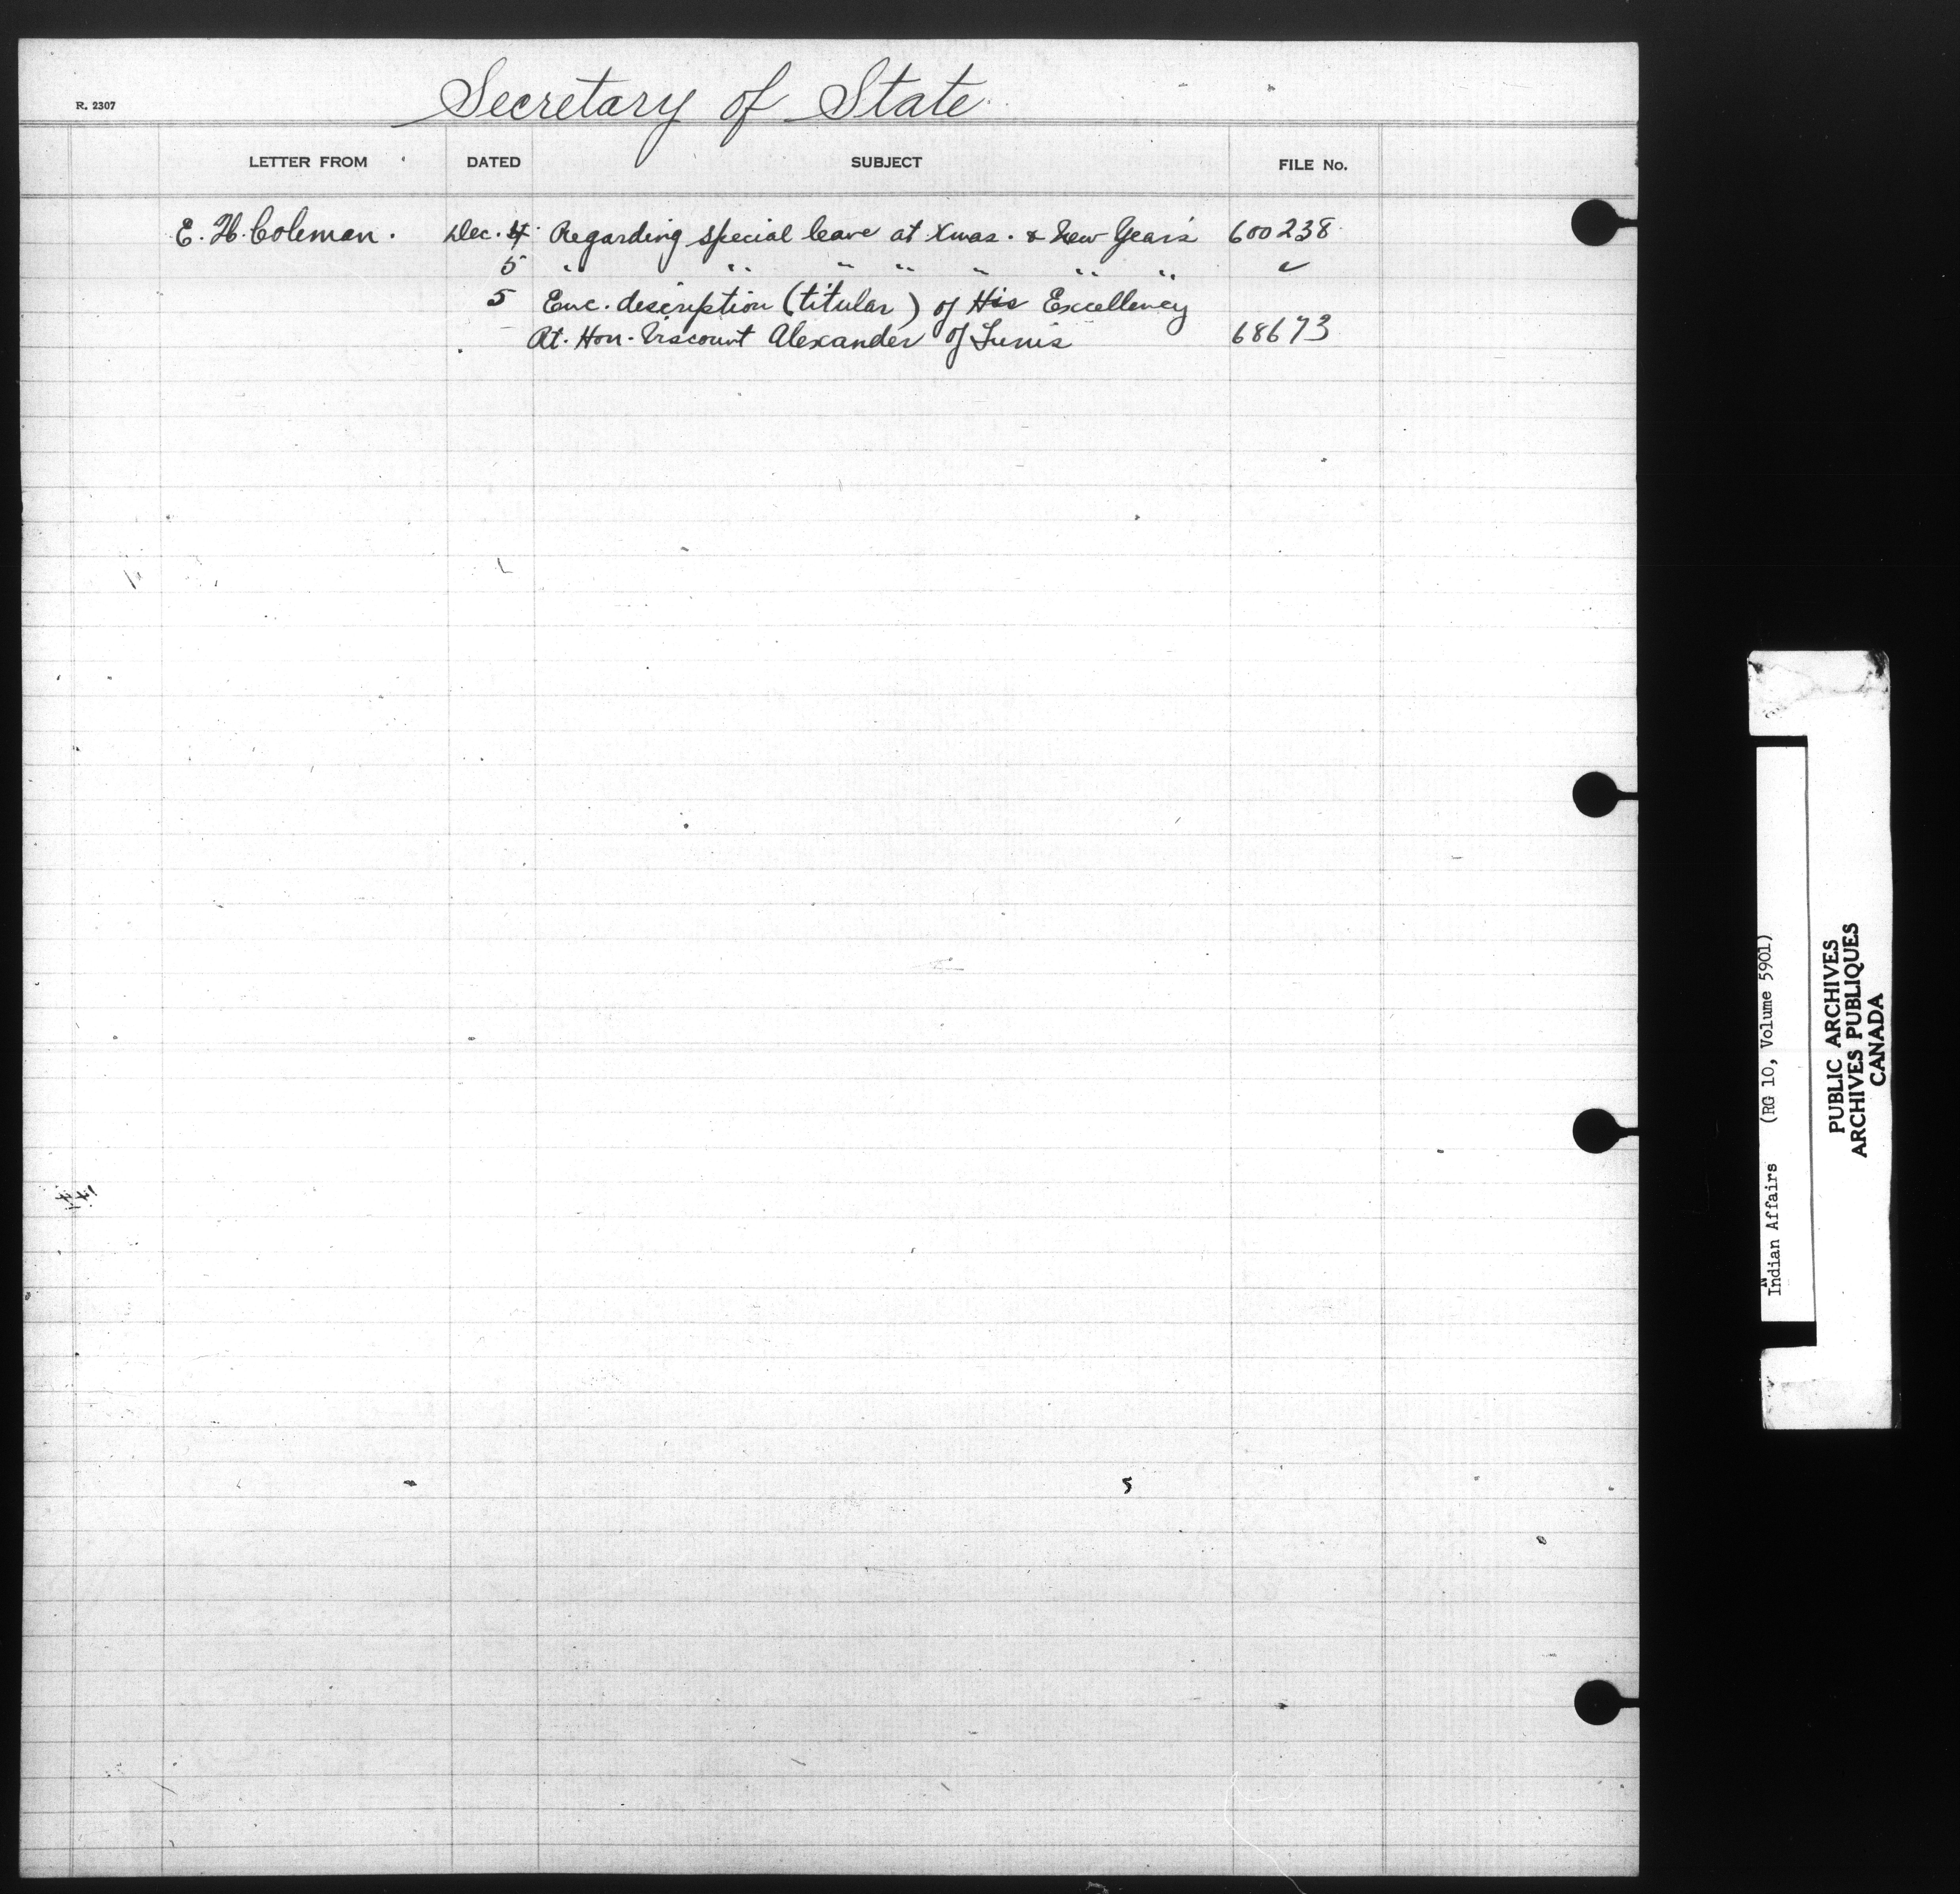 R. 2307
Secretary of State
LETTER FROM DATED SUBJECT FILE No.
E. H. Coleman. Dec. 4 Regarding special leave at Xmas. & New Year's 600238
5 " " " " " " " "
5 Enc. description (titular) of His Excellency
Rt. Hon. Viscount Alexander of Tunis 68673
Indian Affairs (RG 10, Volume 5901)
PUBLIC ARCHIVES
ARCHIVES PUBLIQUES
CANADA